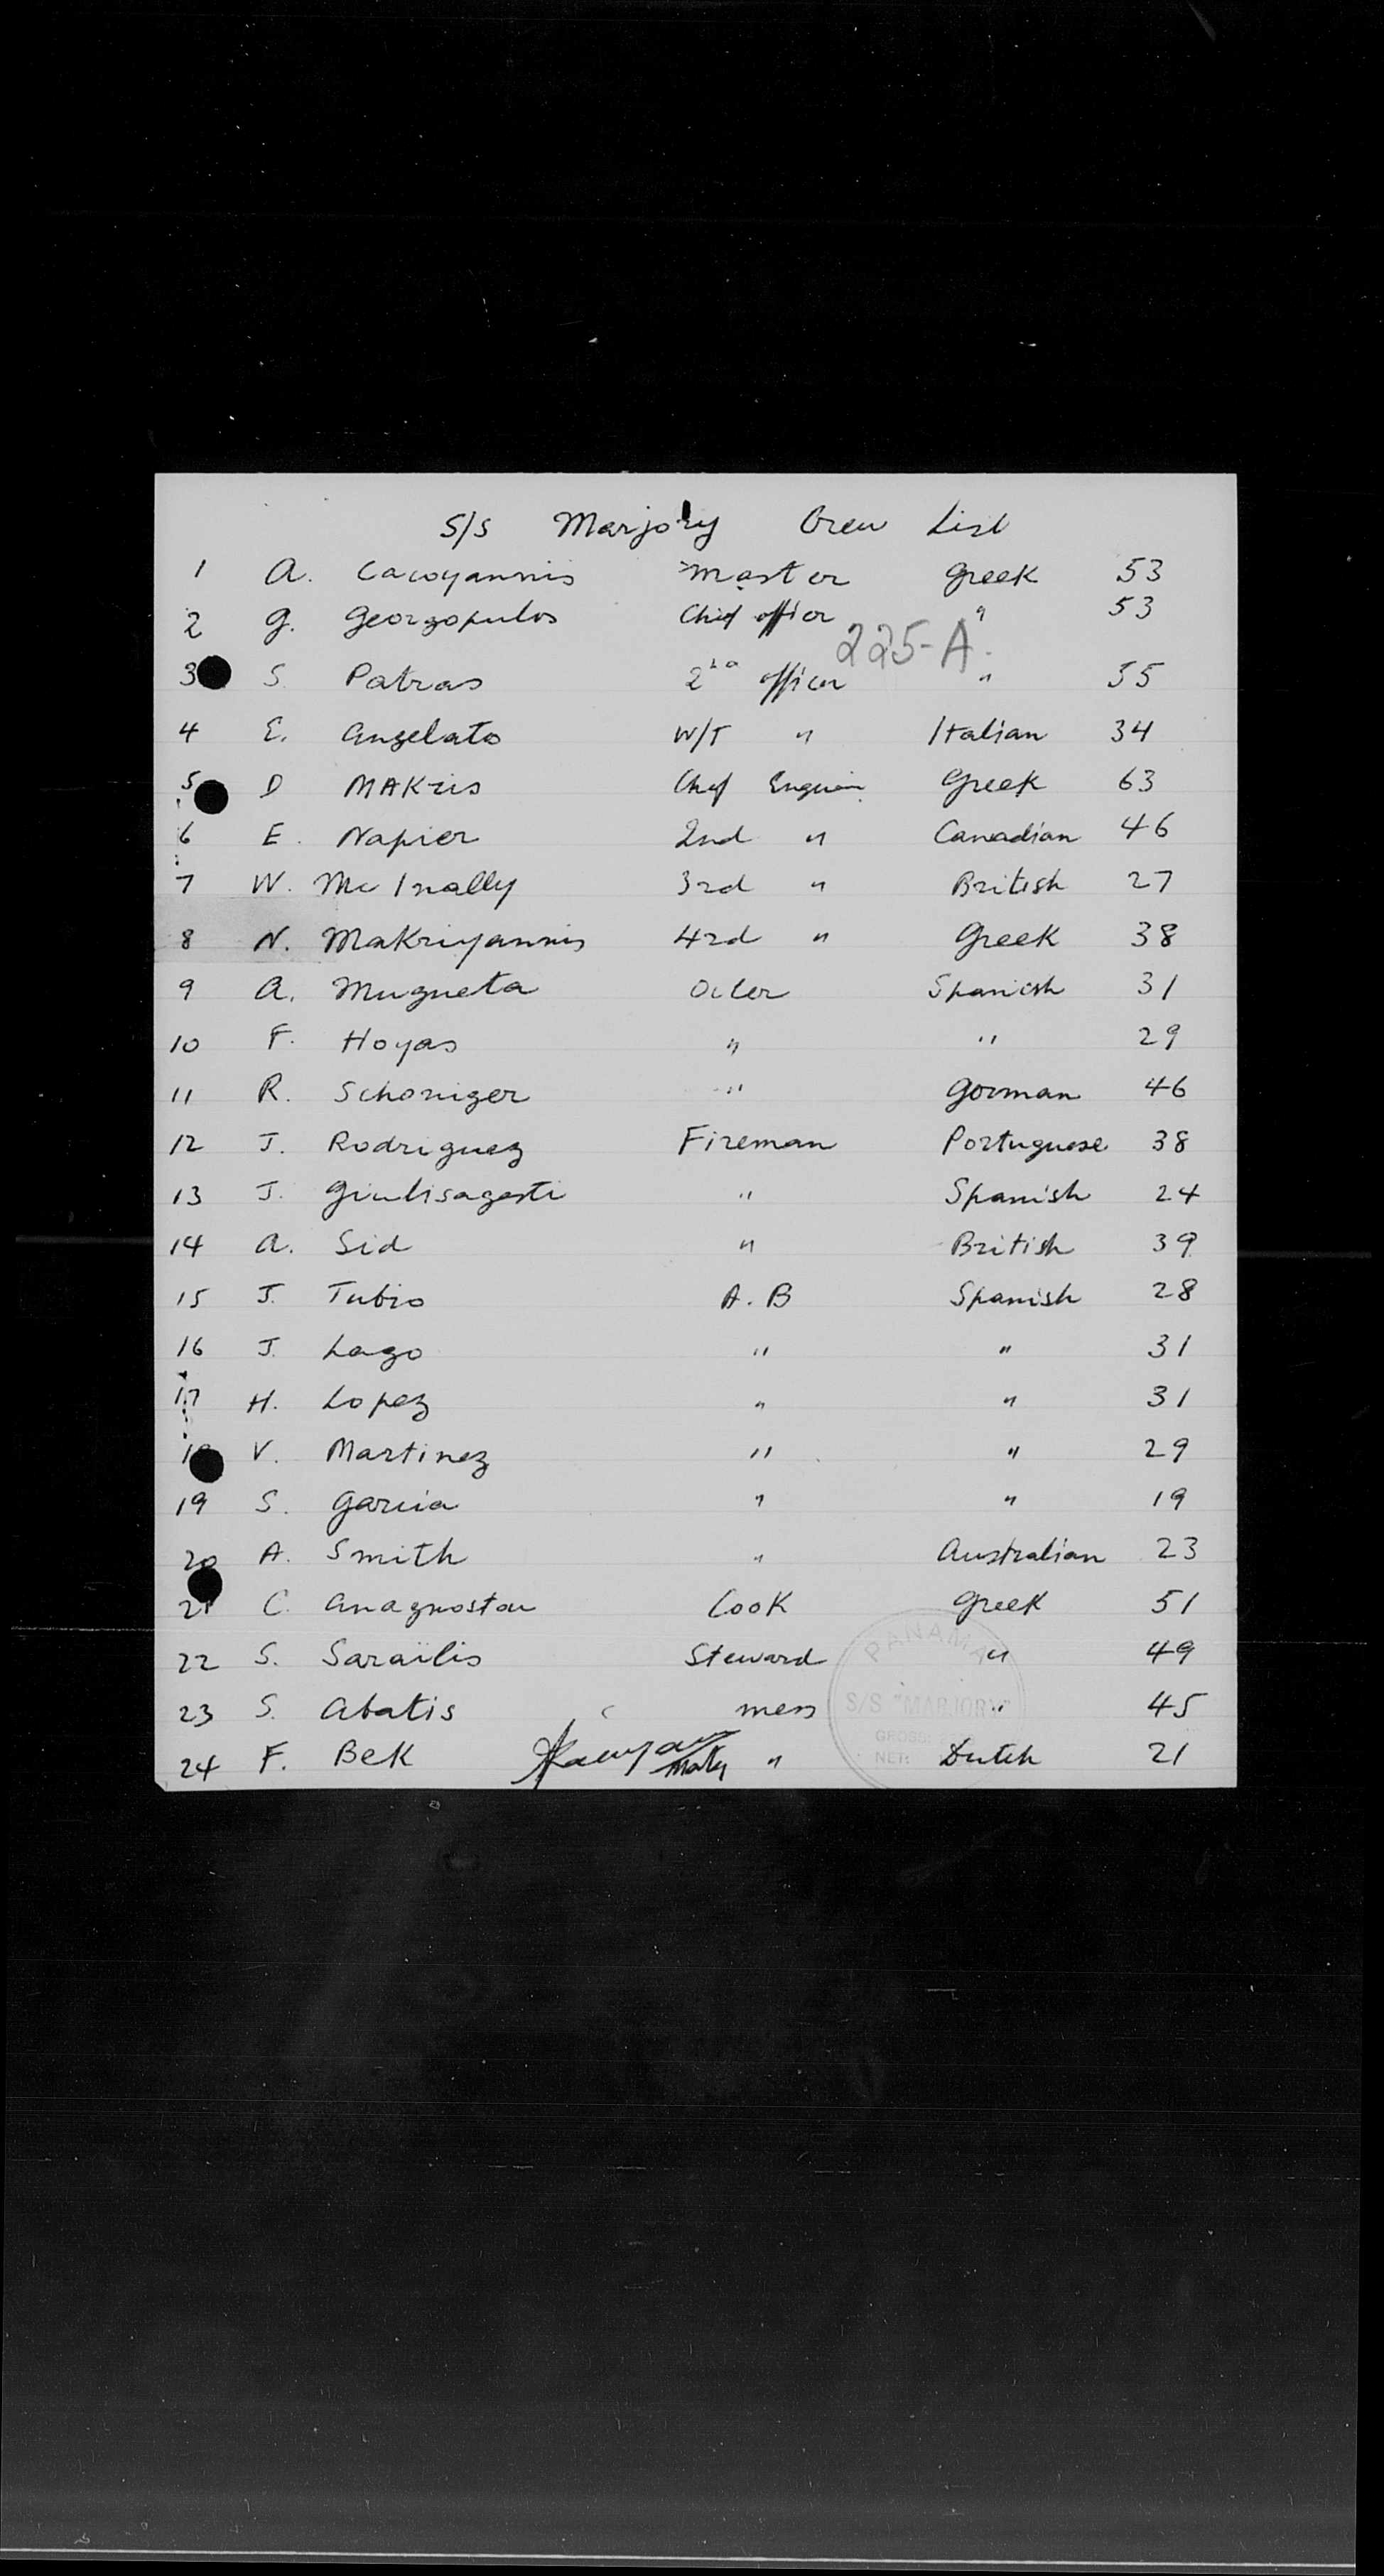 S/S Marjory Crew List
1 A. Cacoyannis Master Greek 53
2 G. Georgopulos Chief officer " 53
225-A.
3 S. Patras 2nd officer " 35
4 E. Angelato W/T " Italian 34
5 D MAKris Chief Greek 63
6 E. Napier 2nd " Canadian 46
7 W. Mc Inally 3rd " British 27
8 N. Makriyannis 4rd " Greek 38
9 A. Mugueta Oiler Spanish 31
10 F. Hoyas " " 29
11 R. Schoniger " German 46
12 J. Rodriguez Fireman Portuguese 38
13 J. " Spanish 24
14 A. Sid " British 39
15 J. Tubio A.B Spanish 28
16 J. Lago " " 31
17 H. Lopez " " 31
18 V. Martinez " " 29
19 S. Garcia " " 19
20 A. Smith " Australian 23
21 C. Anagnostou Cook Greek 51
22 S. Sarailis Steward " 49
23 S. Abatis mess " 45
24 F. Bek " Dutch 21
PANAMA
S/S "MARJORY"
GROSS:
NET: